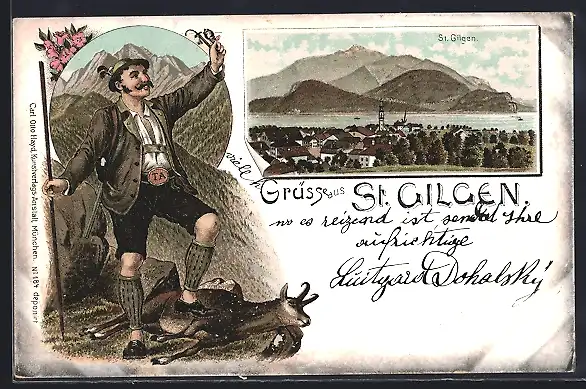 St. Gilgen.
viele h.
Grüsse aus
ST. GILGEN.
wo es reizend ist sendet Ihre
aufrichtige
Luitgard Dohalský
TA
Carl Otto Hayd, Kunstverlags-Anstalt, München. No 184 deponirt